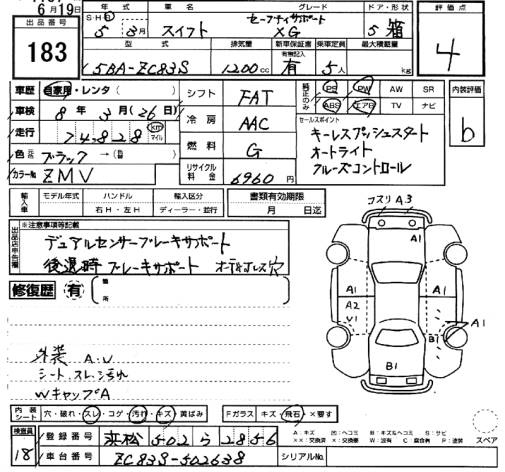 6月19日
出品番号
183
年式 車名 グレード ドア・形状 評価点
S・H・R 5年 3月 スイフト セーフティサポート XG 5 箱
4
型式 排気量 新車保証書 乗車定員 最大積載量
有無記入
5BA-ZC83S 1200cc 有 5人 kg
車歴 自家用・レンタ( )
車検 8年 3月(26日)
走行 74,828 km マイル
色 元色 ブラック → (色 )
カラーNo ZMV
シフト FAT
冷房 AAC
燃料 G
リサイクル料金 6960円
純正のみ PS PW AW SR
ABS エアB TV ナビ
内装評価
b
セールスポイント
キーレスプッシュスタート
オートライト
クルーズコントロール
輸入車 モデル年式 ハンドル 輸入区分 書類有効期限
右H・左H ディーラー・並行 月 日迄
出品店申告欄
※注意事項等記載
デュアルセンサーブレーキサポート
後退時ブレーキサポート オーディオレス穴
修復歴 有 箇所
コスリ A3
A1
A1
A2
V1
A1
B1
A1
B1
外装 A.U
シート、スレ、ヨゴレ
WキャップA
内装シート 穴・破れ・スレ・コゲ・汚れ・キズ・黄ばみ
Fガラス キズ・飛石・×要す
検査員
18
登録番号 浜松 502 ら 2856
車台番号 ZC83S-502638
シリアルNo.
A:キズ U:ヘコミ B:キズ&ヘコミ S:サビ
××:交換済 ×:交換要 W:波有 C:腐食有 P:塗装
スペア